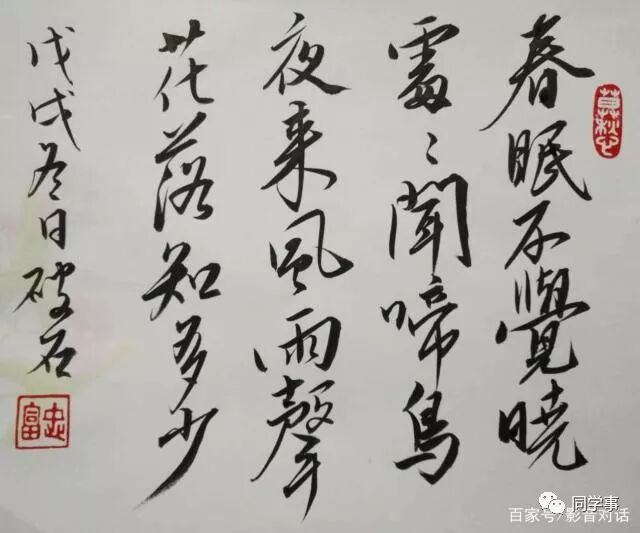 春眠不覺曉
處〻聞啼鳥
夜来風雨聲
花落知多少
戊戌冬日破石
忠富
同学事
百家号/影音对话